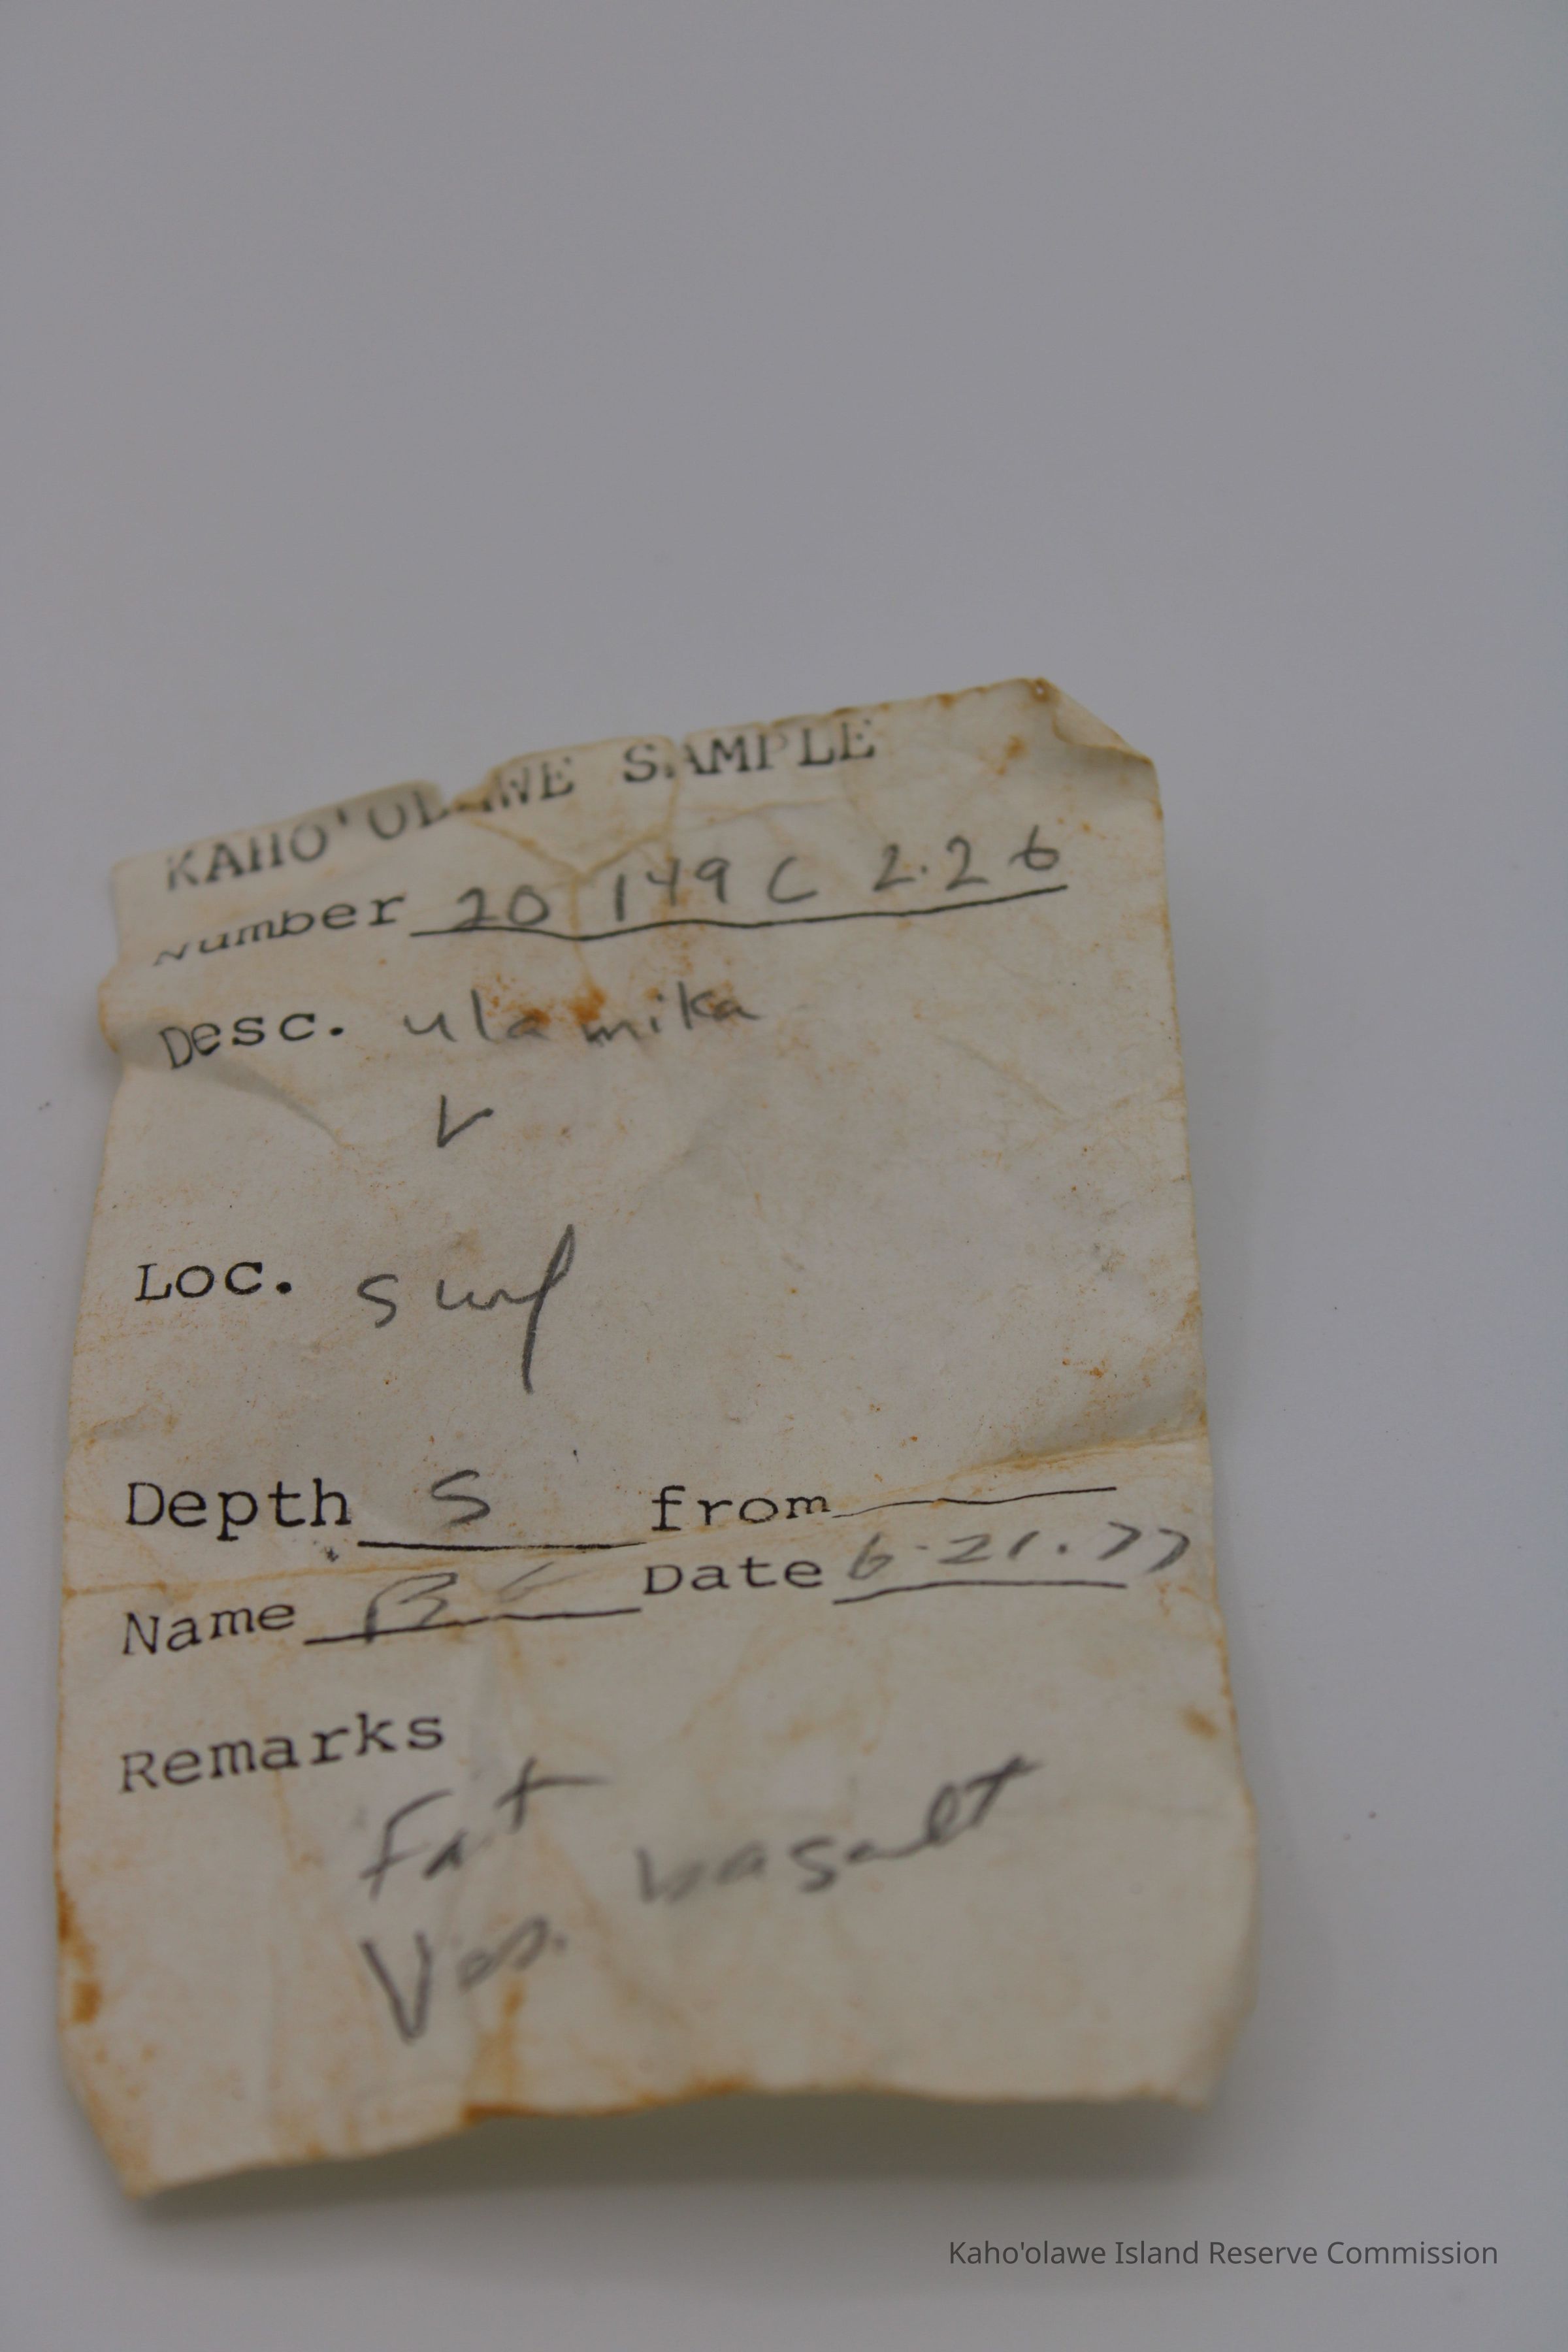 KAHO'OLAWE SAMPLE
Number 20 149 C 2.26
Desc. ulamika
Loc. surf
Depth S from
Name Date 6.21.77
Remarks
Fat
Ves. basalt
Kaho'olawe Island Reserve Commission